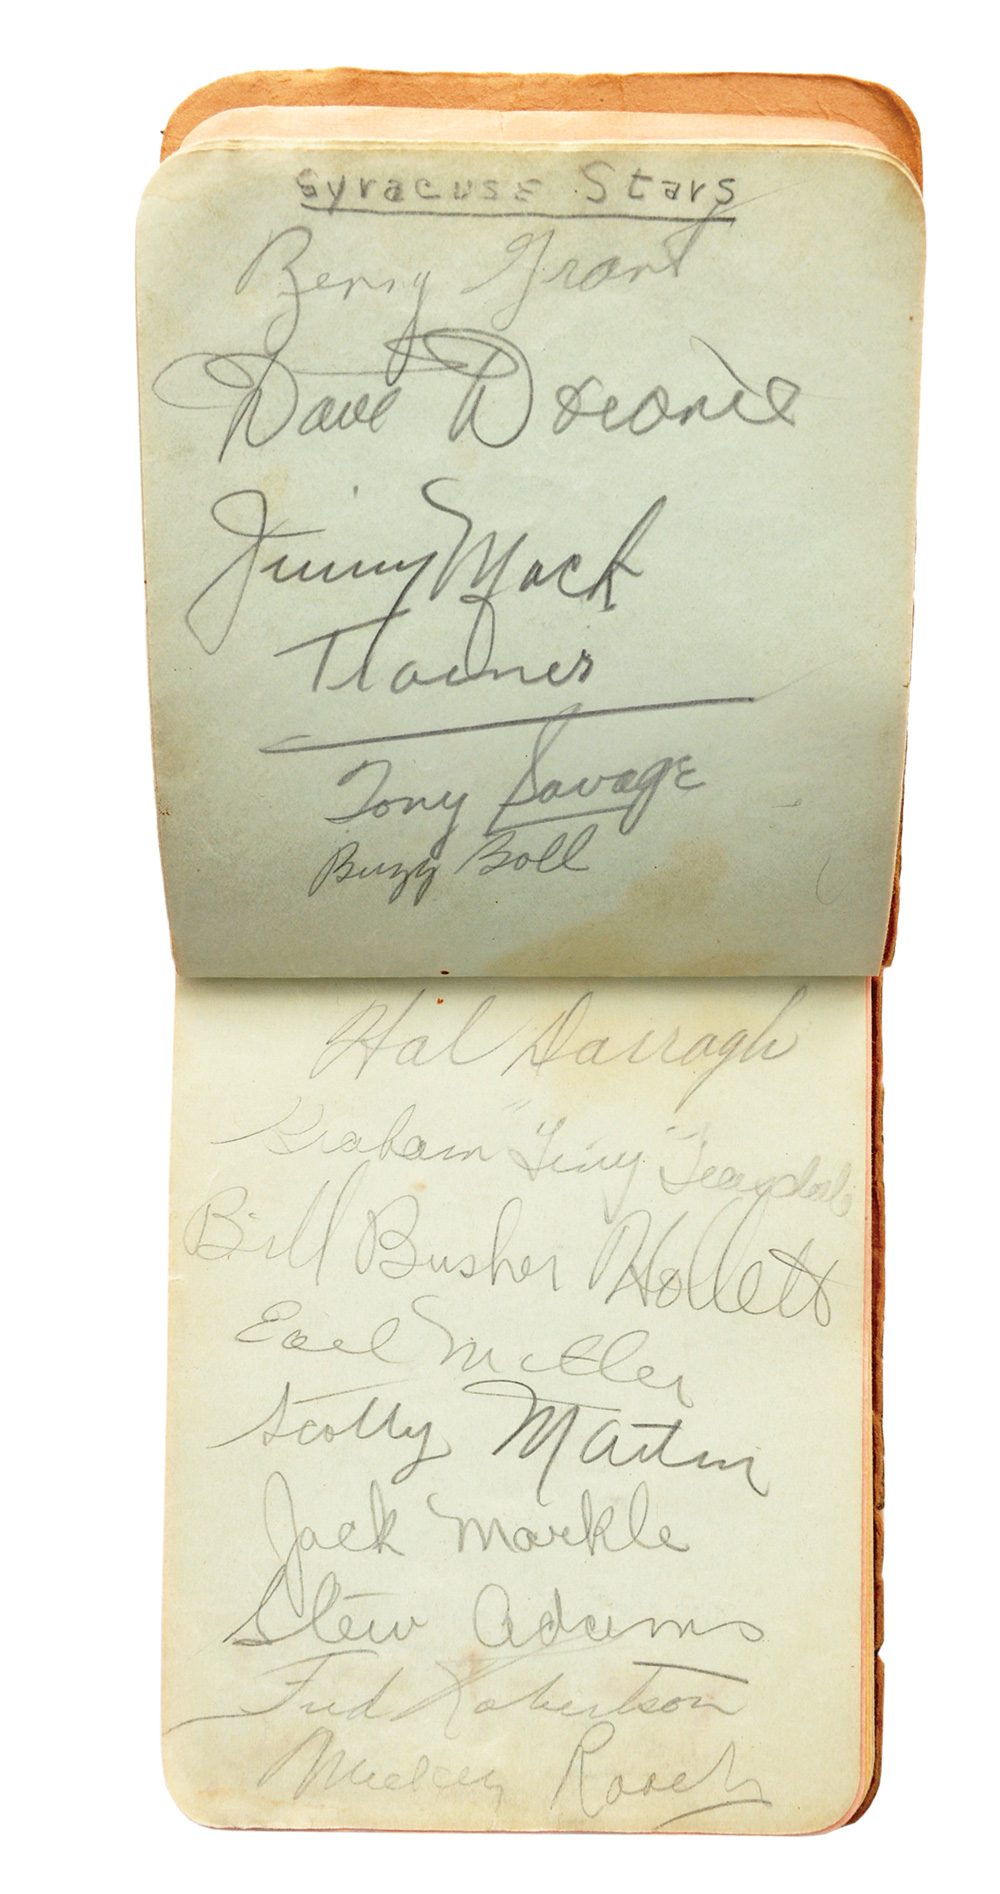 Syracuse Stars
Benny Grant
Dave
Jimmy Mack
Trainer
Tony Savage
Buzz Boll
Hal Darragh
Graham "Tiny" Teasdale
Bill Busher Hollett
Earl Miller
Scotty Martin
Jack Markle
Stew Adams
Fred Robertson
Mickey Roach